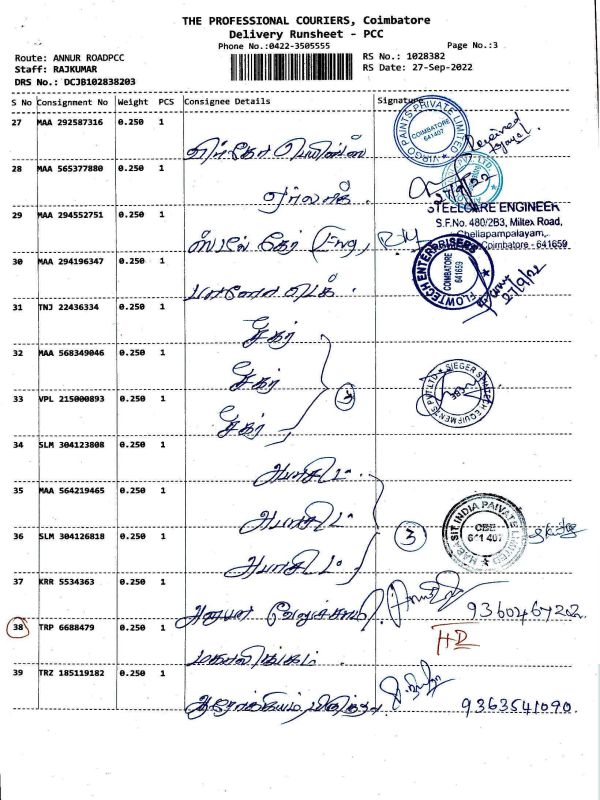 THE PROFESSIONAL COURIERS, Coimbatore
Delivery Runsheet - PCC
Phone No.:0422-3505555
Page No.:3
Route: ANNUR ROADPCC
Staff: RAJKUMAR
DRS No.: DCJB102838203
RS No.: 1028382
RS Date: 27-Sep-2022
S No Consignment No Weight PCS Consignee Details Signature
27 MAA 292587316 0.250 1
VIRGO PAINTS PRIVATE LIMITED
COIMBATORE
641407
Received
28 MAA 565377880 0.250 1
27/9/22
29 MAA 294552751 0.250 1
ஸ்டீல் கேர் (Eng,
STEELCARE ENGINEER
S.F.No. 480/2B3, Miltex Road,
Chellapampalayam,
Coimbatore - 641659
30 MAA 294196347 0.250 1
FLOWTECH ENTERPRISERS
COIMBATORE
641659
31 TNJ 22436334 0.250 1
சீகர்
32 MAA 568349046 0.250 1
சீகர்
33 VPL 215000893 0.250 1
சீகர்
SIEGER SPINTECH EQUIPMENTS PVT LTD
CBE
34 SLM 304123808 0.250 1
அபாசிட்
35 MAA 564219465 0.250 1
அபாசிட்
3
HABASIT INDIA PAIVATE LIMITED
CBE
641 407
36 SLM 304126818 0.250 1
அபாசிட்
37 KRR 5534363 0.250 1
9360467202
38 TRP 6688479 0.250 1
HD
மகாலிங்கம்
39 TRZ 185119182 0.250 1
9363541090